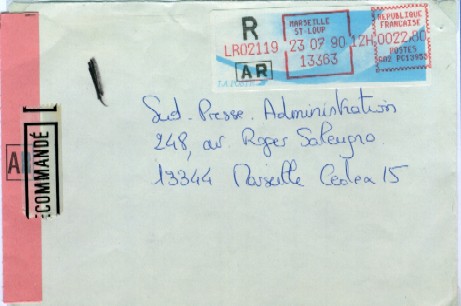 R
LR02119
AR
MARSEILLE
ST-LOUP
23 07 90 12H
13363
REPUBLIQUE
FRANCAISE
0022,80
POSTES
Sud. Presse. Administration
248, av. Roger Salengro.
13344 Marseille Cedex 15
AR
RECOMMANDÉ